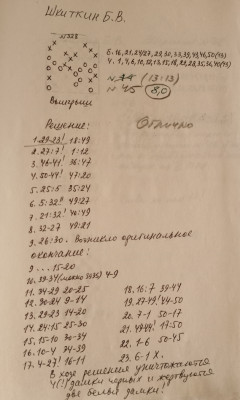 Шкиткин Б.В.
№328
Б. 16,21,24,27,28,30,33,39,43,46,50(43)
Ч. 1,4,6,10,12,13,15,18,22,28,35,36,40(45)
№44 (13:13)
№45 8,0
Выигрыш
Решение: Отлично
1.29-23! 18:49
2. 27:7! 1:12
3. 46-41! 36:47
4. 50-44! 47:20
5. 25:5 35:24
6. 5:32! 49:27
7. 21:32! 40:49
8. 32-27 49:21
9. 26:30. Возникло оригинальное
окончание:
9 ... 15-20
10. 39-34 4-9
11. 34-29 20-25
12. 30-24 9-14
13. 29-23 14-20
14. 24:15 25-30
15. 15-10 30-34
16. 10-4 34-39
17. 4-27! 16-11
18. 16:7 39-44
19. 27-49! 44-50
20. 7-1 50-17
21. 49:44! 17:50
22. 1-6 50-45
23. 6-1 X.
В ходе решения уничтожаются
4(!) дамки черных и жертвуются
две белых дамки!